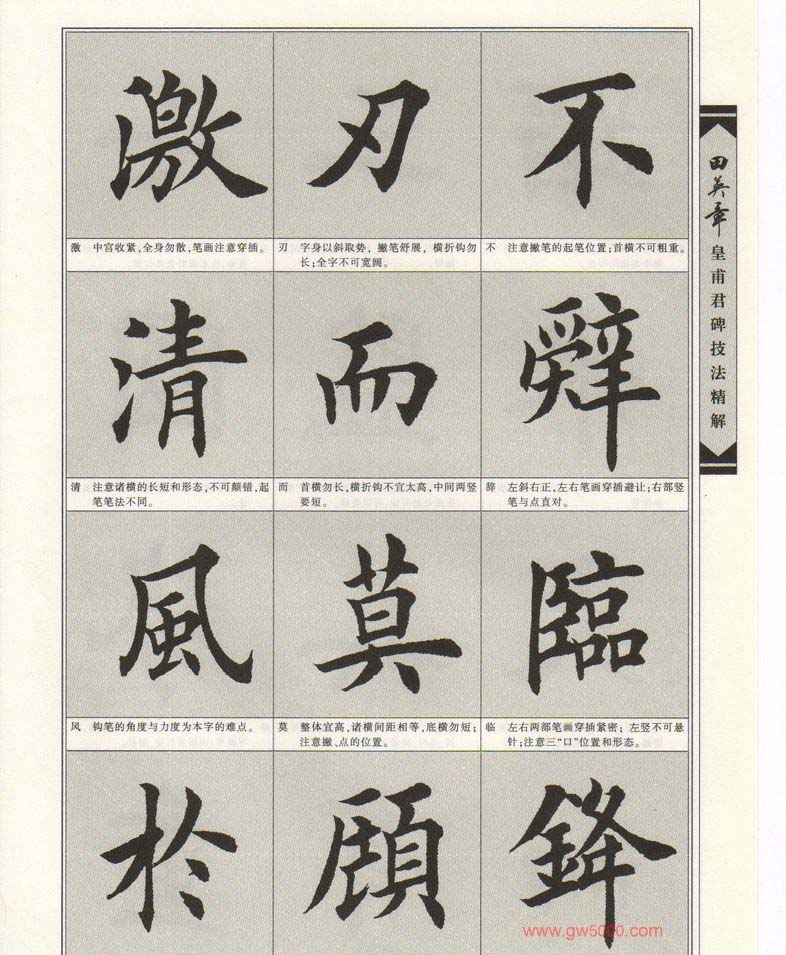 田英章皇甫君碑技法精解
不
不 注意撇笔的起笔位置;首横不可粗重。
辤
辞 左斜右正,左右笔画穿插避让;右部竖
笔与点直对。
臨
临 左右两部笔画穿插紧密;左竖不可悬
针;注意三“口”位置和形态。
鋒
刃
刃 字身以斜取势,撇笔舒展,横折钩勿
长;全字不可宽阔。
而
而 首横勿长,横折钩不宜太高,中间两竖
要短。
莫
莫 整体宜高,诸横间距相等,底横勿短;
注意撇、点的位置。
顧
激
激 中宫收紧,全身勿散,笔画注意穿插。
清
清 注意诸横的长短和形态,不可颠错,起
笔笔法不同。
風
风 钩笔的角度与力度为本字的难点。
於
www.gw5000.com